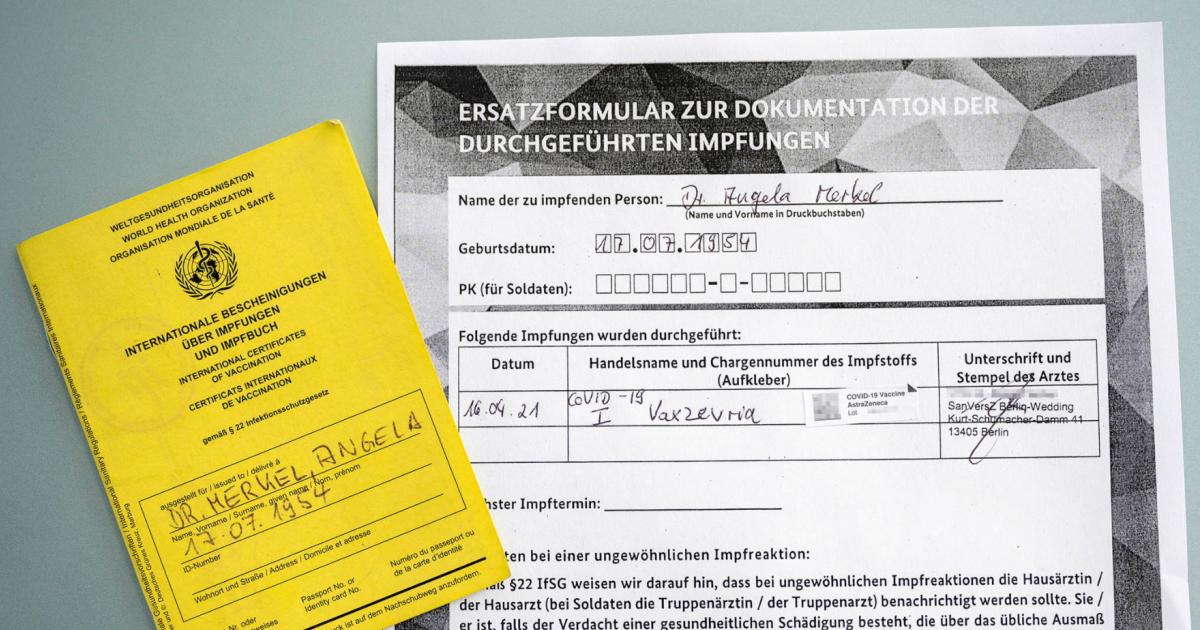 WELTGESUNDHEITSORGANISATION
WORLD HEALTH ORGANIZATION
ORGANISATION MONDIALE DE LA SANTÉ
INTERNATIONALE BESCHEINIGUNGEN
ÜBER IMPFUNGEN
UND IMPFBUCH
INTERNATIONAL CERTIFICATES
OF VACCINATION
CERTIFICATS INTERNATIONAUX
DE VACCINATION
gemäß § 22 Infektionsschutzgesetz
ausgestellt für / issued to / délivré à
DR. MERKEL, ANGELA
Name, Vorname / Surname, given name / Nom, prénom
17.07.1954
ID-Number
Wohnort und Straße / Address / Domicile et adresse
Passport No. or
Identity card No.
Numéro du passeport ou
de la carte d'identité
Nr. oder
ist auf dem Nachschubweg anzufordern.
Gesundheitsvorschriften / International Sanitary Regulations / Règlements Sanitaires Internationaux
Deutsches Grünes Kreuz, Marburg
ERSATZFORMULAR ZUR DOKUMENTATION DER
DURCHGEFÜHRTEN IMPFUNGEN
Name der zu impfenden Person: Dr. Angela Merkel
(Name und Vorname in Druckbuchstaben)
Geburtsdatum: 17.07.1954
PK (für Soldaten): - -
Folgende Impfungen wurden durchgeführt:
Datum
Handelsname und Chargennummer des Impfstoffs
(Aufkleber)
Unterschrift und
Stempel des Arztes
16.04.21
COVID-19
I Vaxzevria
COVID-19 Vaccine
AstraZeneca
Lot
SanVersZ Berlin-Wedding
Kurt-Schumacher-Damm 41
13405 Berlin
hster Impftermin:
ten bei einer ungewöhnlichen Impfreaktion:
§22 IfSG weisen wir darauf hin, dass bei ungewöhnlichen Impfreaktionen die Hausärztin /
der Hausarzt (bei Soldaten die Truppenärztin / der Truppenarzt) benachrichtigt werden sollte. Sie /
er ist, falls der Verdacht einer gesundheitlichen Schädigung besteht, die über das übliche Ausmaß